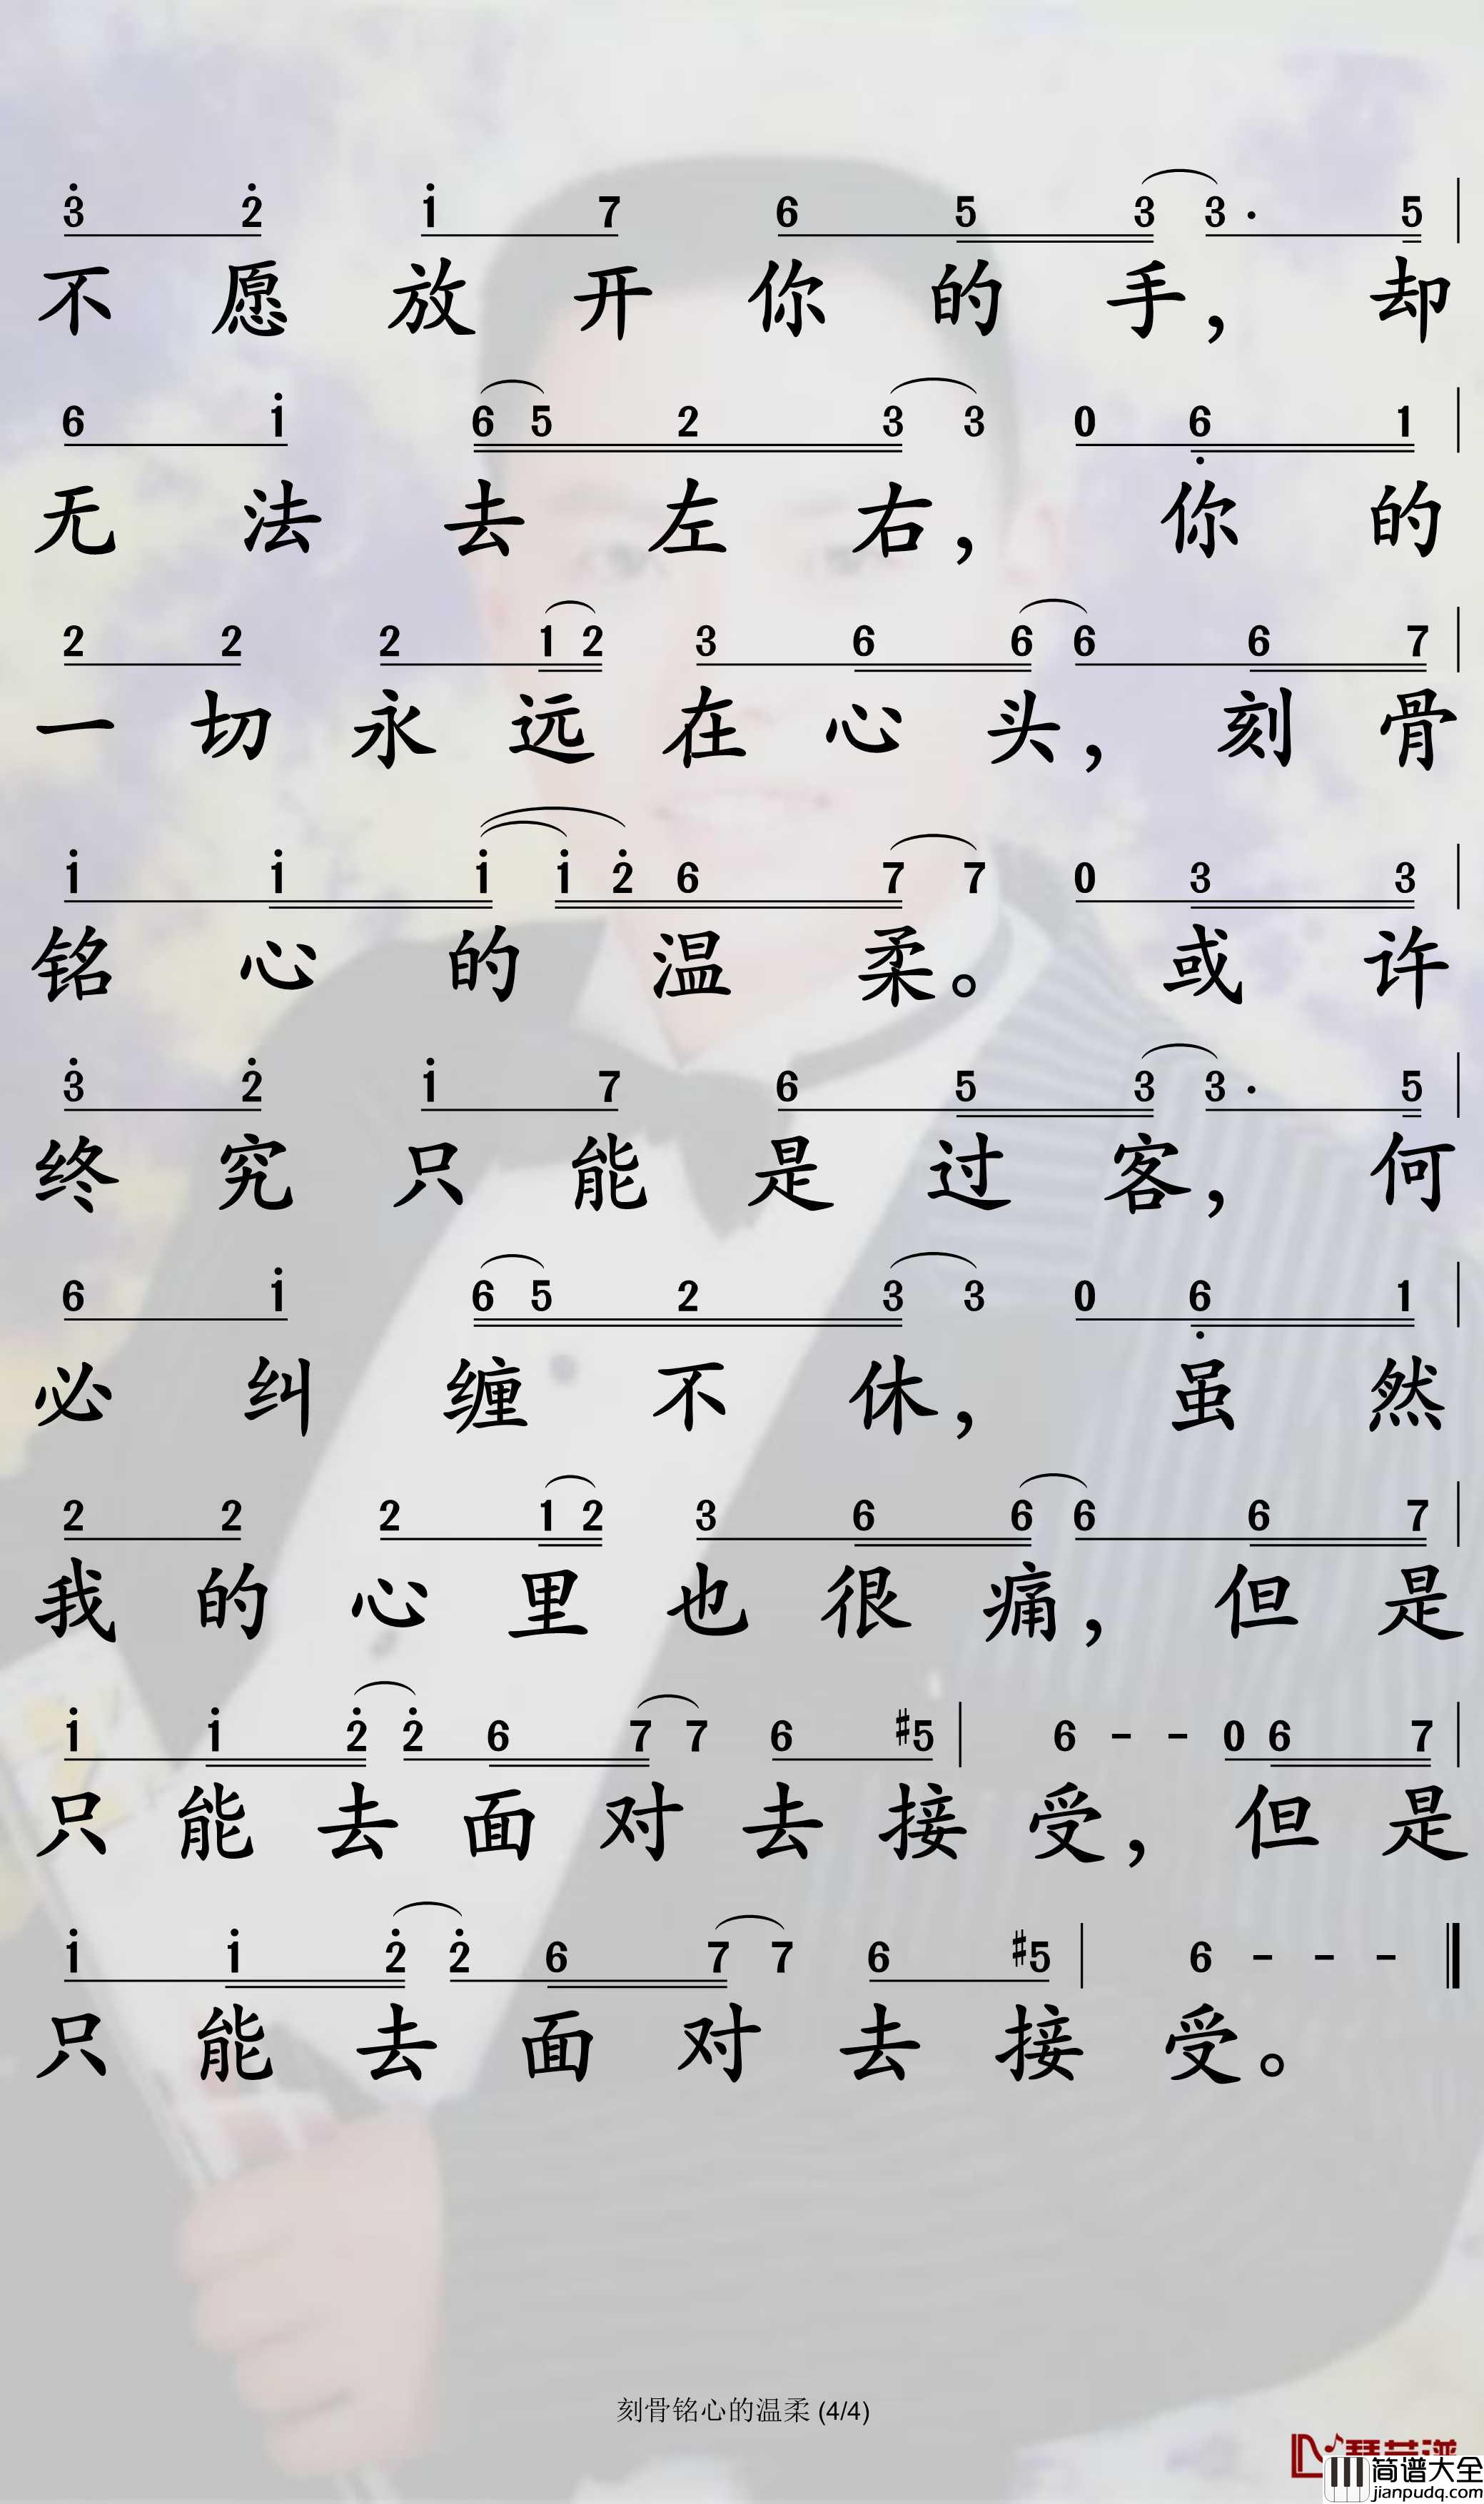 3 2 1 7 6 5 3 3 · 5
不 愿 放 开 你 的 手， 却
6 1 6 5 2 3 3 0 6 1
无 法 去 左 右， 你 的
2 2 2 1 2 3 6 6 6 6 7
一 切 永 远 在 心 头， 刻 骨
1 1 1 1 2 6 7 7 0 3 3
铭 心 的 温 柔。 或 许
3 2 1 7 6 5 3 3 · 5
终 究 只 能 是 过 客， 何
6 1 6 5 2 3 3 0 6 1
必 纠 缠 不 休， 虽 然
2 2 2 1 2 3 6 6 6 6 7
我 的 心 里 也 很 痛， 但 是
1 1 2 2 6 7 7 6 #5 | 6 - - 0 6 7
只 能 去 面 对 去 接 受， 但 是
1 1 2 2 6 7 7 6 #5 | 6 - - -
只 能 去 面 对 去 接 受。
刻骨铭心的温柔 (4/4)
简谱大全
jianpudq.com